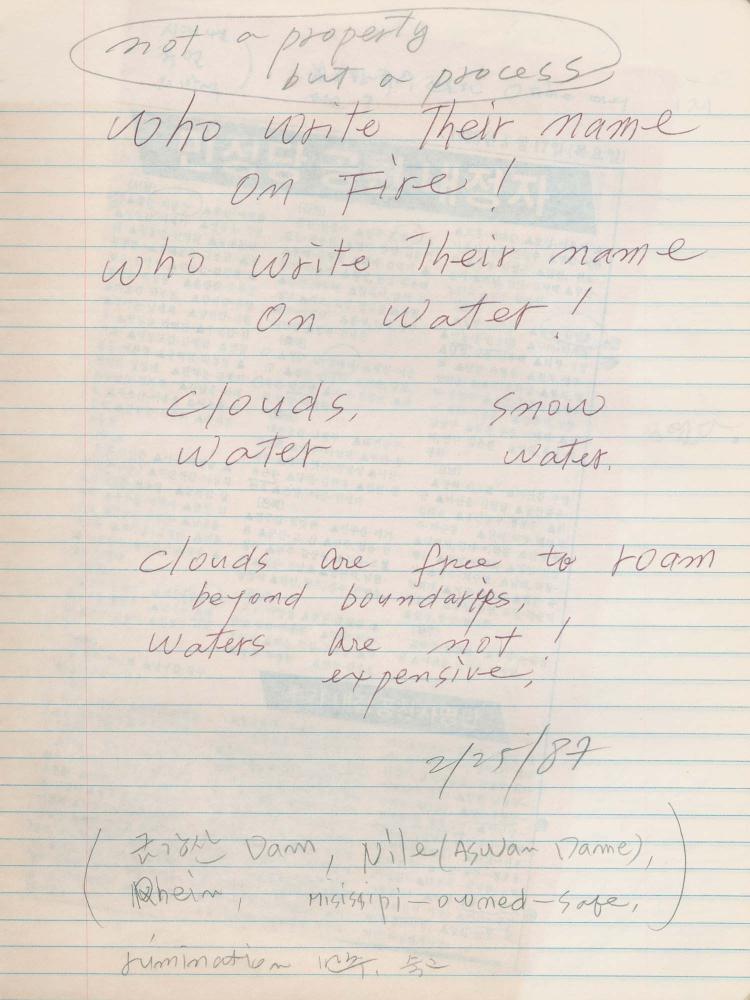 not a property
but a process
who write Their name
on Fire!
who write Their name
on water!
clouds, snow
water water.
clouds are free to roam
beyond boundaries,
waters are not!
expensive,
2/25/87
(금강산 Dam, Nile (Aswan Dame),
Rhein, Misissipi-owned-safe,)
rumination